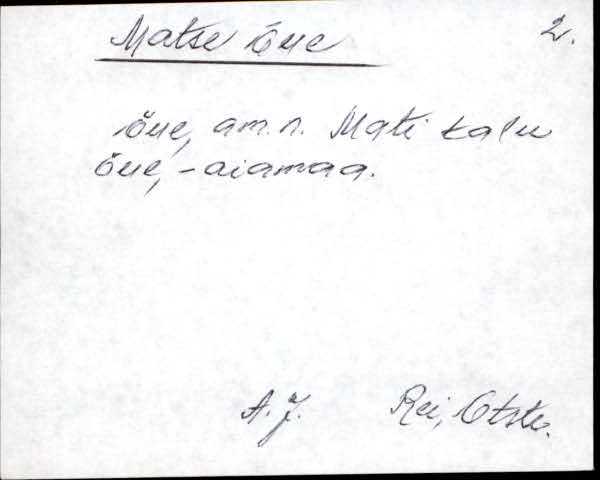 Matse õue 2.
õue, am. n. Mati talu
õue, - aiamaa.
A. J. Rei, Otste.